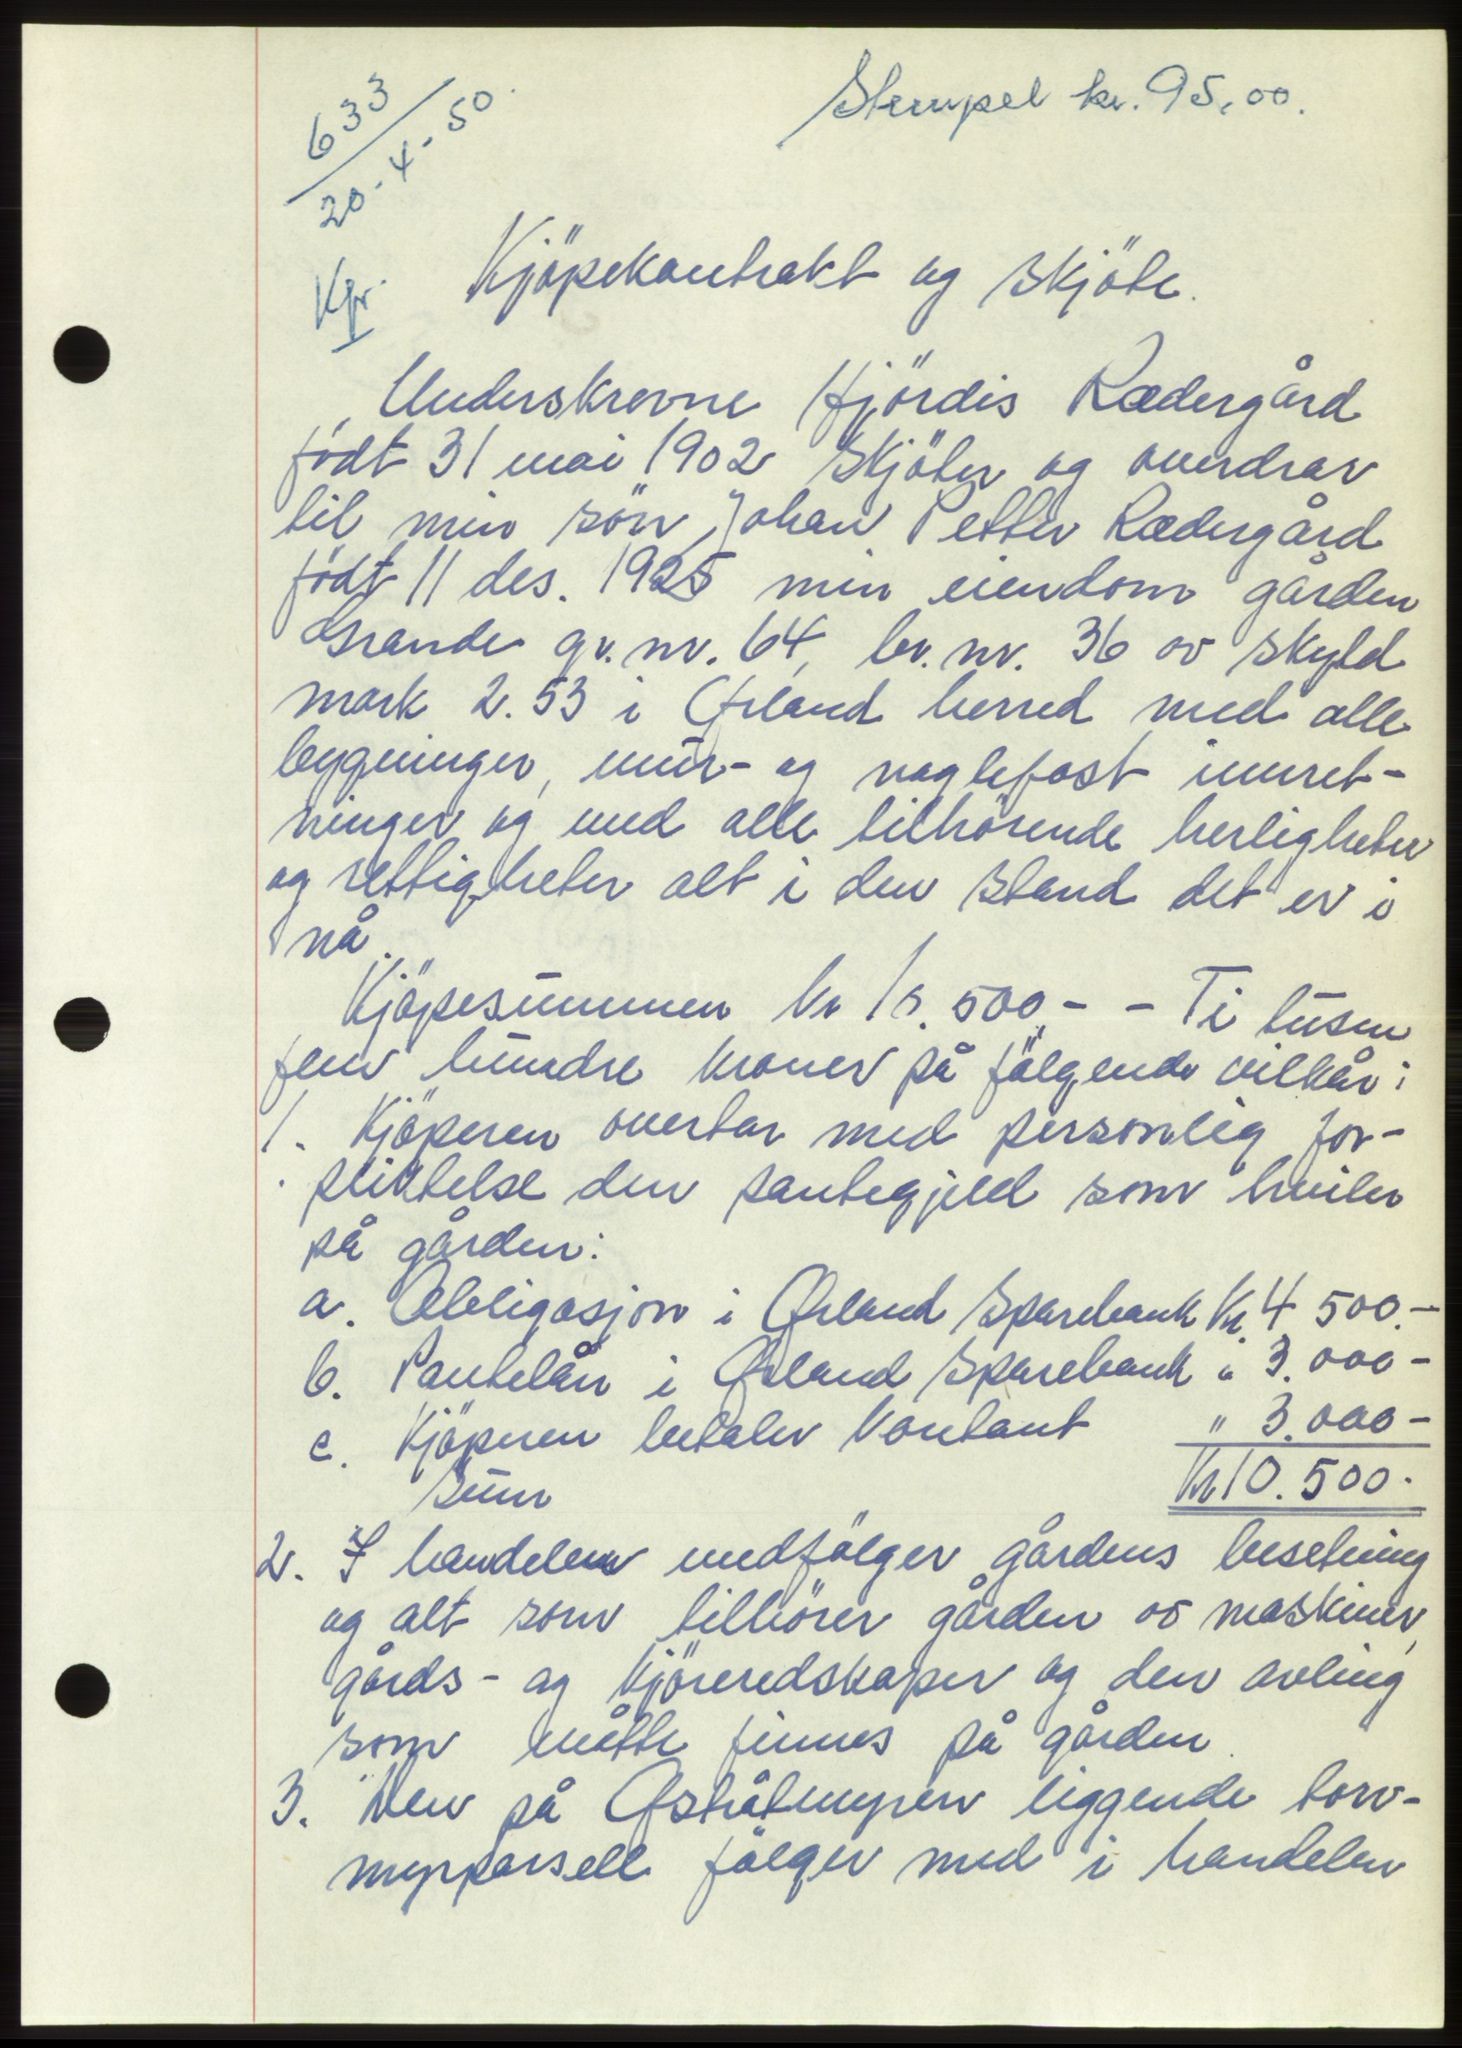 633
20-4-50.
Stempel kr. 95,00.
Kpr.
I
Kjöpekontrakt og skjöte.
Underskrevne Hjördis Rædergård
födt 31 mai 1902 skjöter og overdrar
til min sön Johan Petter Rædergård
födt 11 des. 1925 min eiendom gården
Grande gr. nr. 64, br. nr. 36 av skyld
mark 2.53 i Ørland herred med alle
bygninger, mur- og naglefast innret-
ninger og med alle tilhörende herligheter
og rettigheter alt i den stand det er i
nå.
Kjöpesummen kr 10.500- - Ti tusen
fem hundre kroner på fölgende vilkår:
1. Kjöperen overtar med personlig for-
pliktelse den pantegjeld som hviler
på gården:
a. Obligasjon i Ørland Sparebank Kr. 4 500.-
b. Pantelån i Ørland Sparebank " 3.000-
c. Kjöperen betaler kontant " 3.000-
Sum Kr 10.500.-
2. I handelen medfölger gårdens besetning
og alt som tilhörer gården av maskiner,
gårds- og kjöreredskaper og den avling
som måtte finnes på gården.
3. Den på Østråtmyren liggende torv-
myrparsell fölger med i handelen